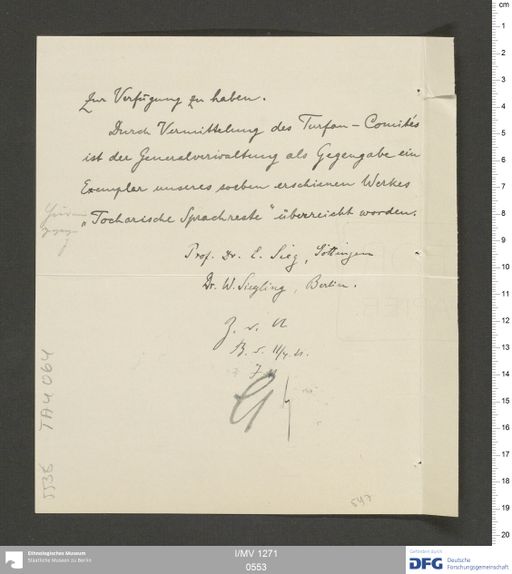 Zur Verfügung zu haben.
Durch Vermittelung des Turfan-Comités
ist der Generalverwaltung als Gegengabe ein
Exemplar unseres soeben erschienen Werkes
„Tocharische Sprachreste" überreicht worden.
Prof. Dr. E. Sieg, Göttingen
Dr. W. Siegling, Berlin.
Z. d. A
B. d.
TA 4064
5538
547
cm
1
2
3
4
5
6
7
8
9
10
11
12
13
14
15
16
17
18
19
20
Ethnologisches Museum
Staatliche Museen zu Berlin
I/MV 1271
0553
Gefördert durch
DFG Deutsche
Forschungsgemeinschaft